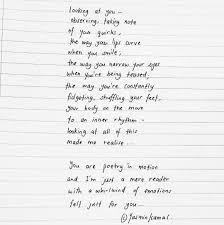 looking at you –
observing, taking note
of your quirks,
the way your lips curve
when you smile,
the way you narrow your eyes
when you're being teased,
the way you're constantly
fidgeting, shuffling your feet,
your body on the move
to an inner rhythm –
looking at all of this
made me realise...
You are poetry in motion
and I'm just a mere reader
with a whirlwind of emotions
felt just for you.